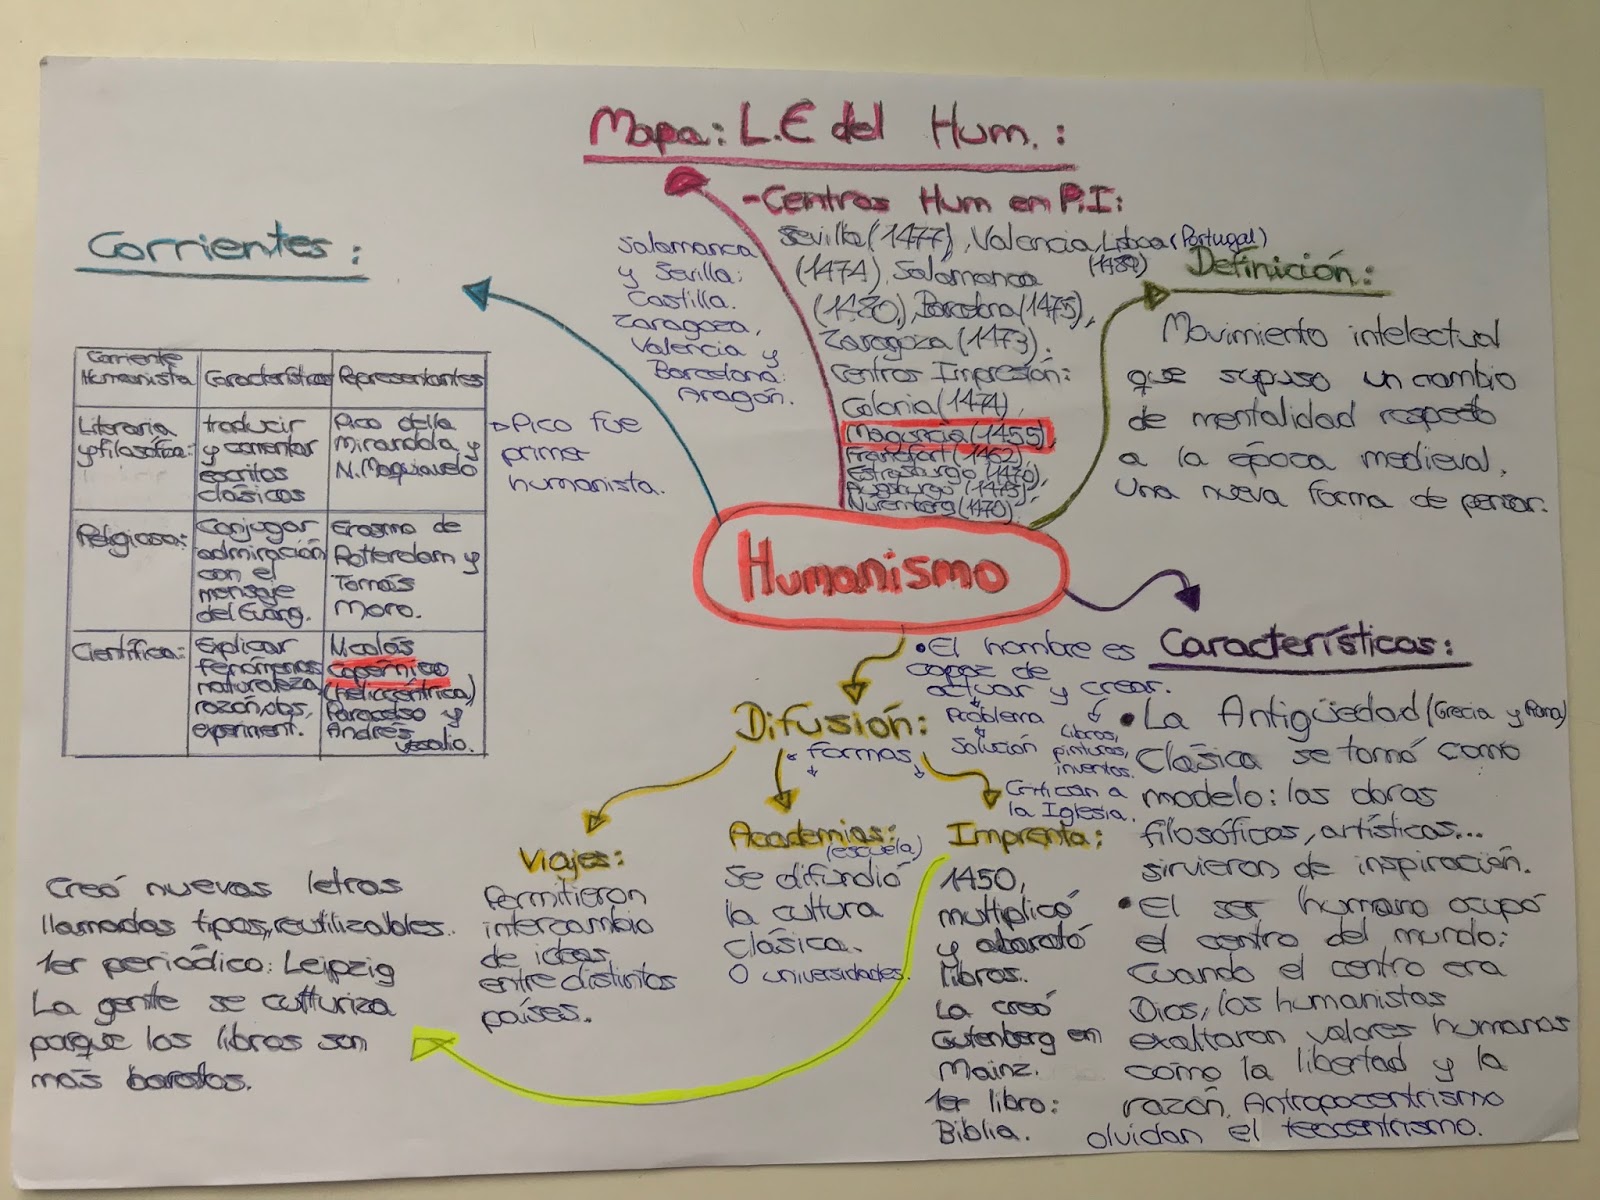 Mapa: L.E del Hum.:
-Centros Hum en P.I:
Sevilla (1477), Valencia, Lisboa (Portugal)
(1474), Salamanca (1489)
(1480), Barcelona (1475),
Zaragoza (1473).
Centros Impresión:
Colonia (1474),
Maguncia (1455),
Francfort (1462)
Estrasburgo (1470)
Augsburgo (1475),
Nuremberg (1470).
Salamanca
y Sevilla:
Castilla.
Zaragoza,
Valencia y
Barcelona:
Aragón.
Corrientes:
Corriente
Humanista
Características
Representantes
Literaria
y filosófica:
traducir
y comentar
escritos
clásicos
Pico della
Mirandola y
N. Maquiavelo
Pico fue
primer
humanista.
Religiosa:
Conjugar
admiración
con el
mensaje
del Evang.
Erasmo de
Rotterdam y
Tomás
Moro.
Científica:
Explicar
fenómenos
naturaleza
razón, obs,
experiment.
Nicolás
Copérnico
(heliocéntrica)
Paracelso y
Andrés
Vesalio.
Definición:
Movimiento intelectual
que supuso un cambio
de mentalidad respecto
a la época medieval.
Una nueva forma de pensar.
Humanismo
Características:
• El hombre es
capaz de
actuar y crear.
Problema
Solución
Libros,
pinturas,
inventos.
Critican a
la Iglesia.
• La Antigüedad (Grecia y Roma)
Clásica se tomó como
modelo: las obras
filosóficas, artísticas...
sirvieron de inspiración.
• El ser humano ocupó
el centro del mundo:
Cuando el centro era
Dios, los humanistas
exaltaron valores humanos
como la libertad y la
razón. Antropocentrismo
olvidan el teocentrismo.
Difusión:
formas
Viajes:
Permitieron
intercambio
de ideas
entre distintos
países.
Academias:
(escuela)
Se difundió
la cultura
clásica.
O universidades.
Imprenta:
1450,
multiplicó
y abarató
libros.
La creó
Gutenberg en
Mainz.
1er libro:
Biblia.
Creó nuevas letras
llamadas tipos, reutilizables.
1er periódico: Leipzig
La gente se culturiza
porque los libros son
más baratos.